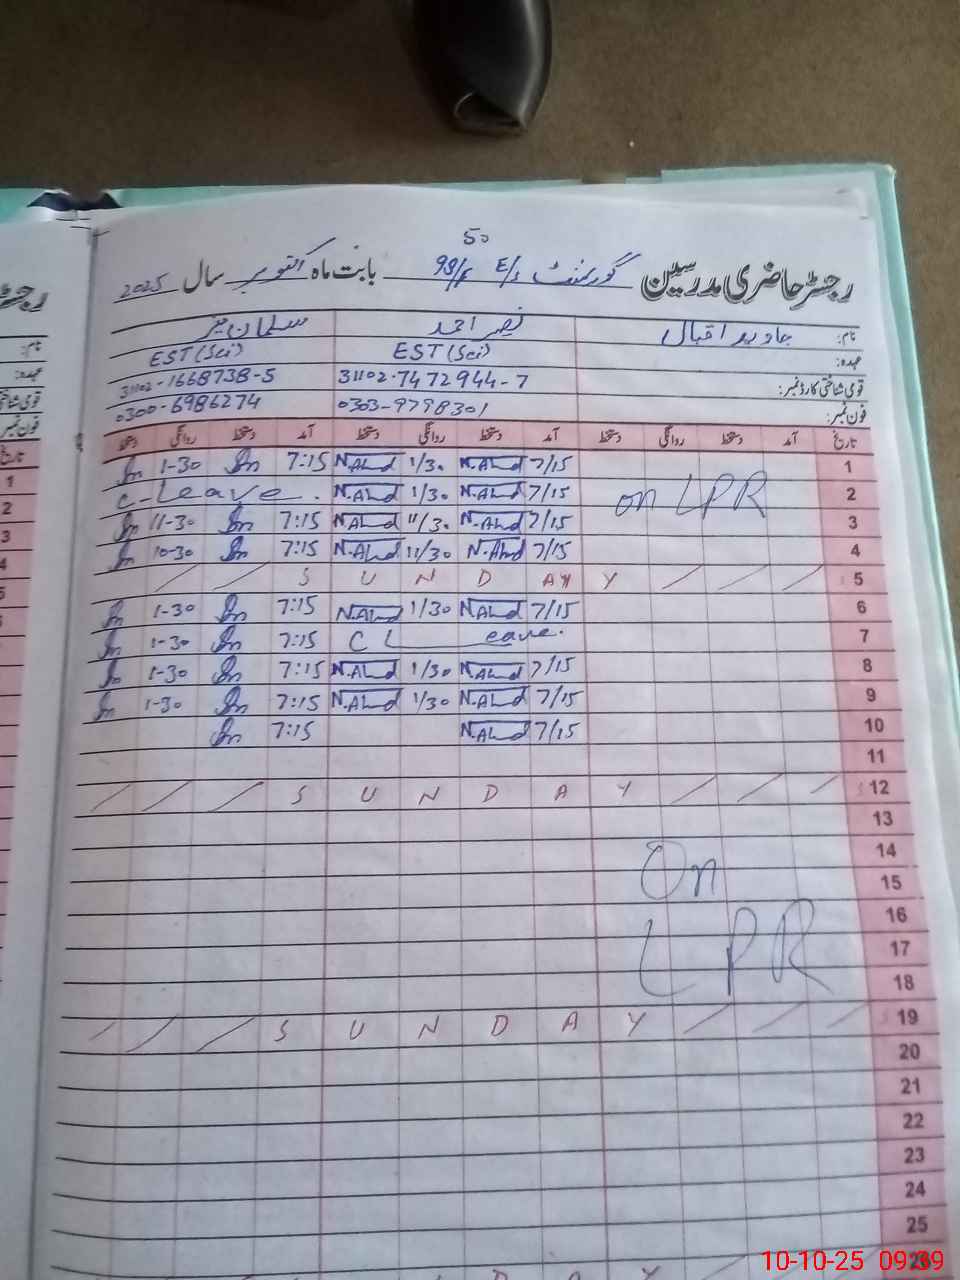 50
رجسٹر حاضری مدرسین گورنمنٹ E/s 99/F بابت ماہ اکتوبر سال 2025
نام: جاوید اقبال نصیر احمد سلمان منیر
عہدہ: EST (Sci) EST (Sci)
قومی شناختی کارڈ نمبر: 31102-7472944-7 31102-1668738-5
فون نمبر: 0303-9798301 0300-6986274
تاریخ آمد دستخط روانگی دستخط آمد دستخط روانگی دستخط آمد دستخط روانگی دستخط
1-30 7:15 N.Ahmd 1/30 N.Ahmd 7/15 1
C-Leave. N.Ahmd 1/30 N.Ahmd 7/15 on LPR 2
11-30 7:15 N.Ahmd 11/30 N.Ahmd 7/15 3
10-30 7:15 N.Ahmd 11/30 N.Ahmd 7/15 4
S U N D A Y 5
1-30 7:15 N.Ahmd 1/30 N.Ahmd 7/15 6
1-30 7:15 C Leave. 7
1-30 7:15 N.Ahmd 1/30 N.Ahmd 7/15 8
1-30 7:15 N.Ahmd 1/30 N.Ahmd 7/15 9
7:15 N.Ahmd 7/15 10
11
S U N D A Y 12
13
On 14
15
LPR 16
17
18
S U N D A Y 19
20
21
22
23
24
25
26
10-10-25 09:39